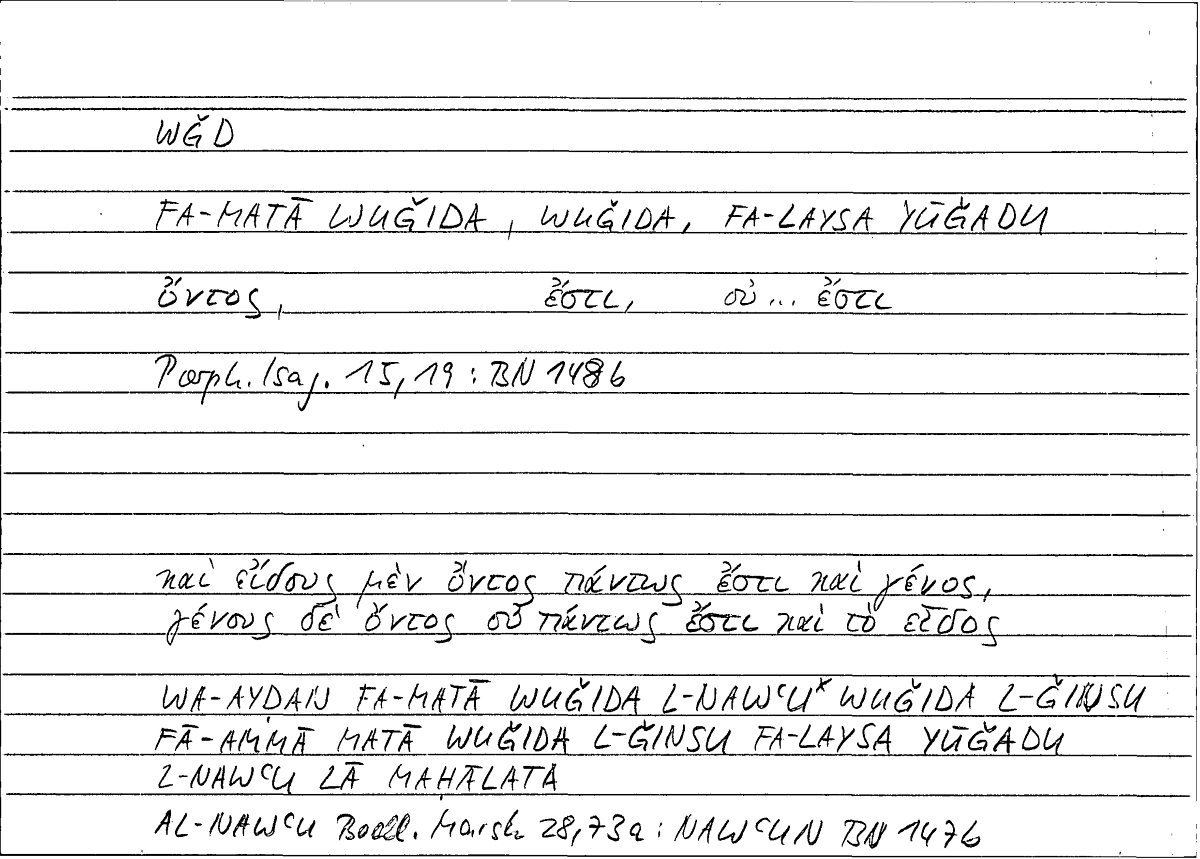 WǦD
FA-MATĀ WUǦIDA, WUǦIDA, FA-LAYSA YŪǦADU
ὄντος, ἔστι, οὐ... ἔστι
Porph. Isag. 15,19: BN 148b
καὶ εἴδους μὲν ὄντος πάντως ἔστι καὶ γένος,
γένους δὲ ὄντος οὐ πάντως ἔστι καὶ τὸ εἶδος
WA-AYDAN FA-MATĀ WUǦIDA L-NAWᶜU* WUǦIDA L-ǦINSU
FĀ-AMMĀ MATĀ WUǦIDA L-ǦINSU FA-LAYSA YŪǦADU
L-NAWᶜU LĀ MAHĀLATA
AL-NAWᶜU Bodl. Marsh 28,73a: NAWᶜUN BN 147b